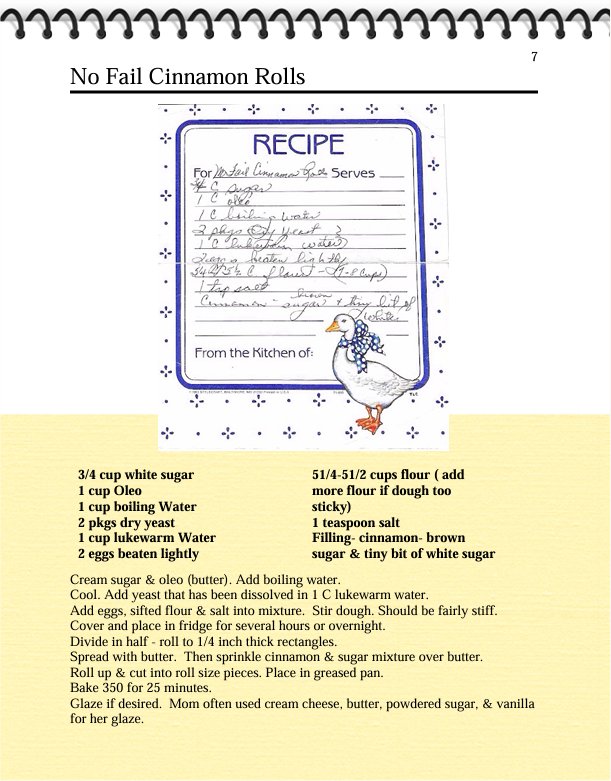 7
No Fail Cinnamon Rolls
RECIPE
For No Fail Cinnamon Rolls Serves
3/4 C sugar
1 C oleo
1 C boiling water
2 pkgs dry yeast
1 C lukewarm water
2 eggs beaten lightly
5 1/2 C flour - (7-8 cups)
1 tsp salt
brown
Cinnamon - sugar + tiny bit of
white
From the Kitchen of:
3/4 cup white sugar
1 cup Oleo
1 cup boiling Water
2 pkgs dry yeast
1 cup lukewarm Water
2 eggs beaten lightly
51/4-51/2 cups flour ( add
more flour if dough too
sticky)
1 teaspoon salt
Filling- cinnamon- brown
sugar & tiny bit of white sugar
Cream sugar & oleo (butter). Add boiling water.
Cool. Add yeast that has been dissolved in 1 C lukewarm water.
Add eggs, sifted flour & salt into mixture. Stir dough. Should be fairly stiff.
Cover and place in fridge for several hours or overnight.
Divide in half - roll to 1/4 inch thick rectangles.
Spread with butter. Then sprinkle cinnamon & sugar mixture over butter.
Roll up & cut into roll size pieces. Place in greased pan.
Bake 350 for 25 minutes.
Glaze if desired. Mom often used cream cheese, butter, powdered sugar, & vanilla
for her glaze.